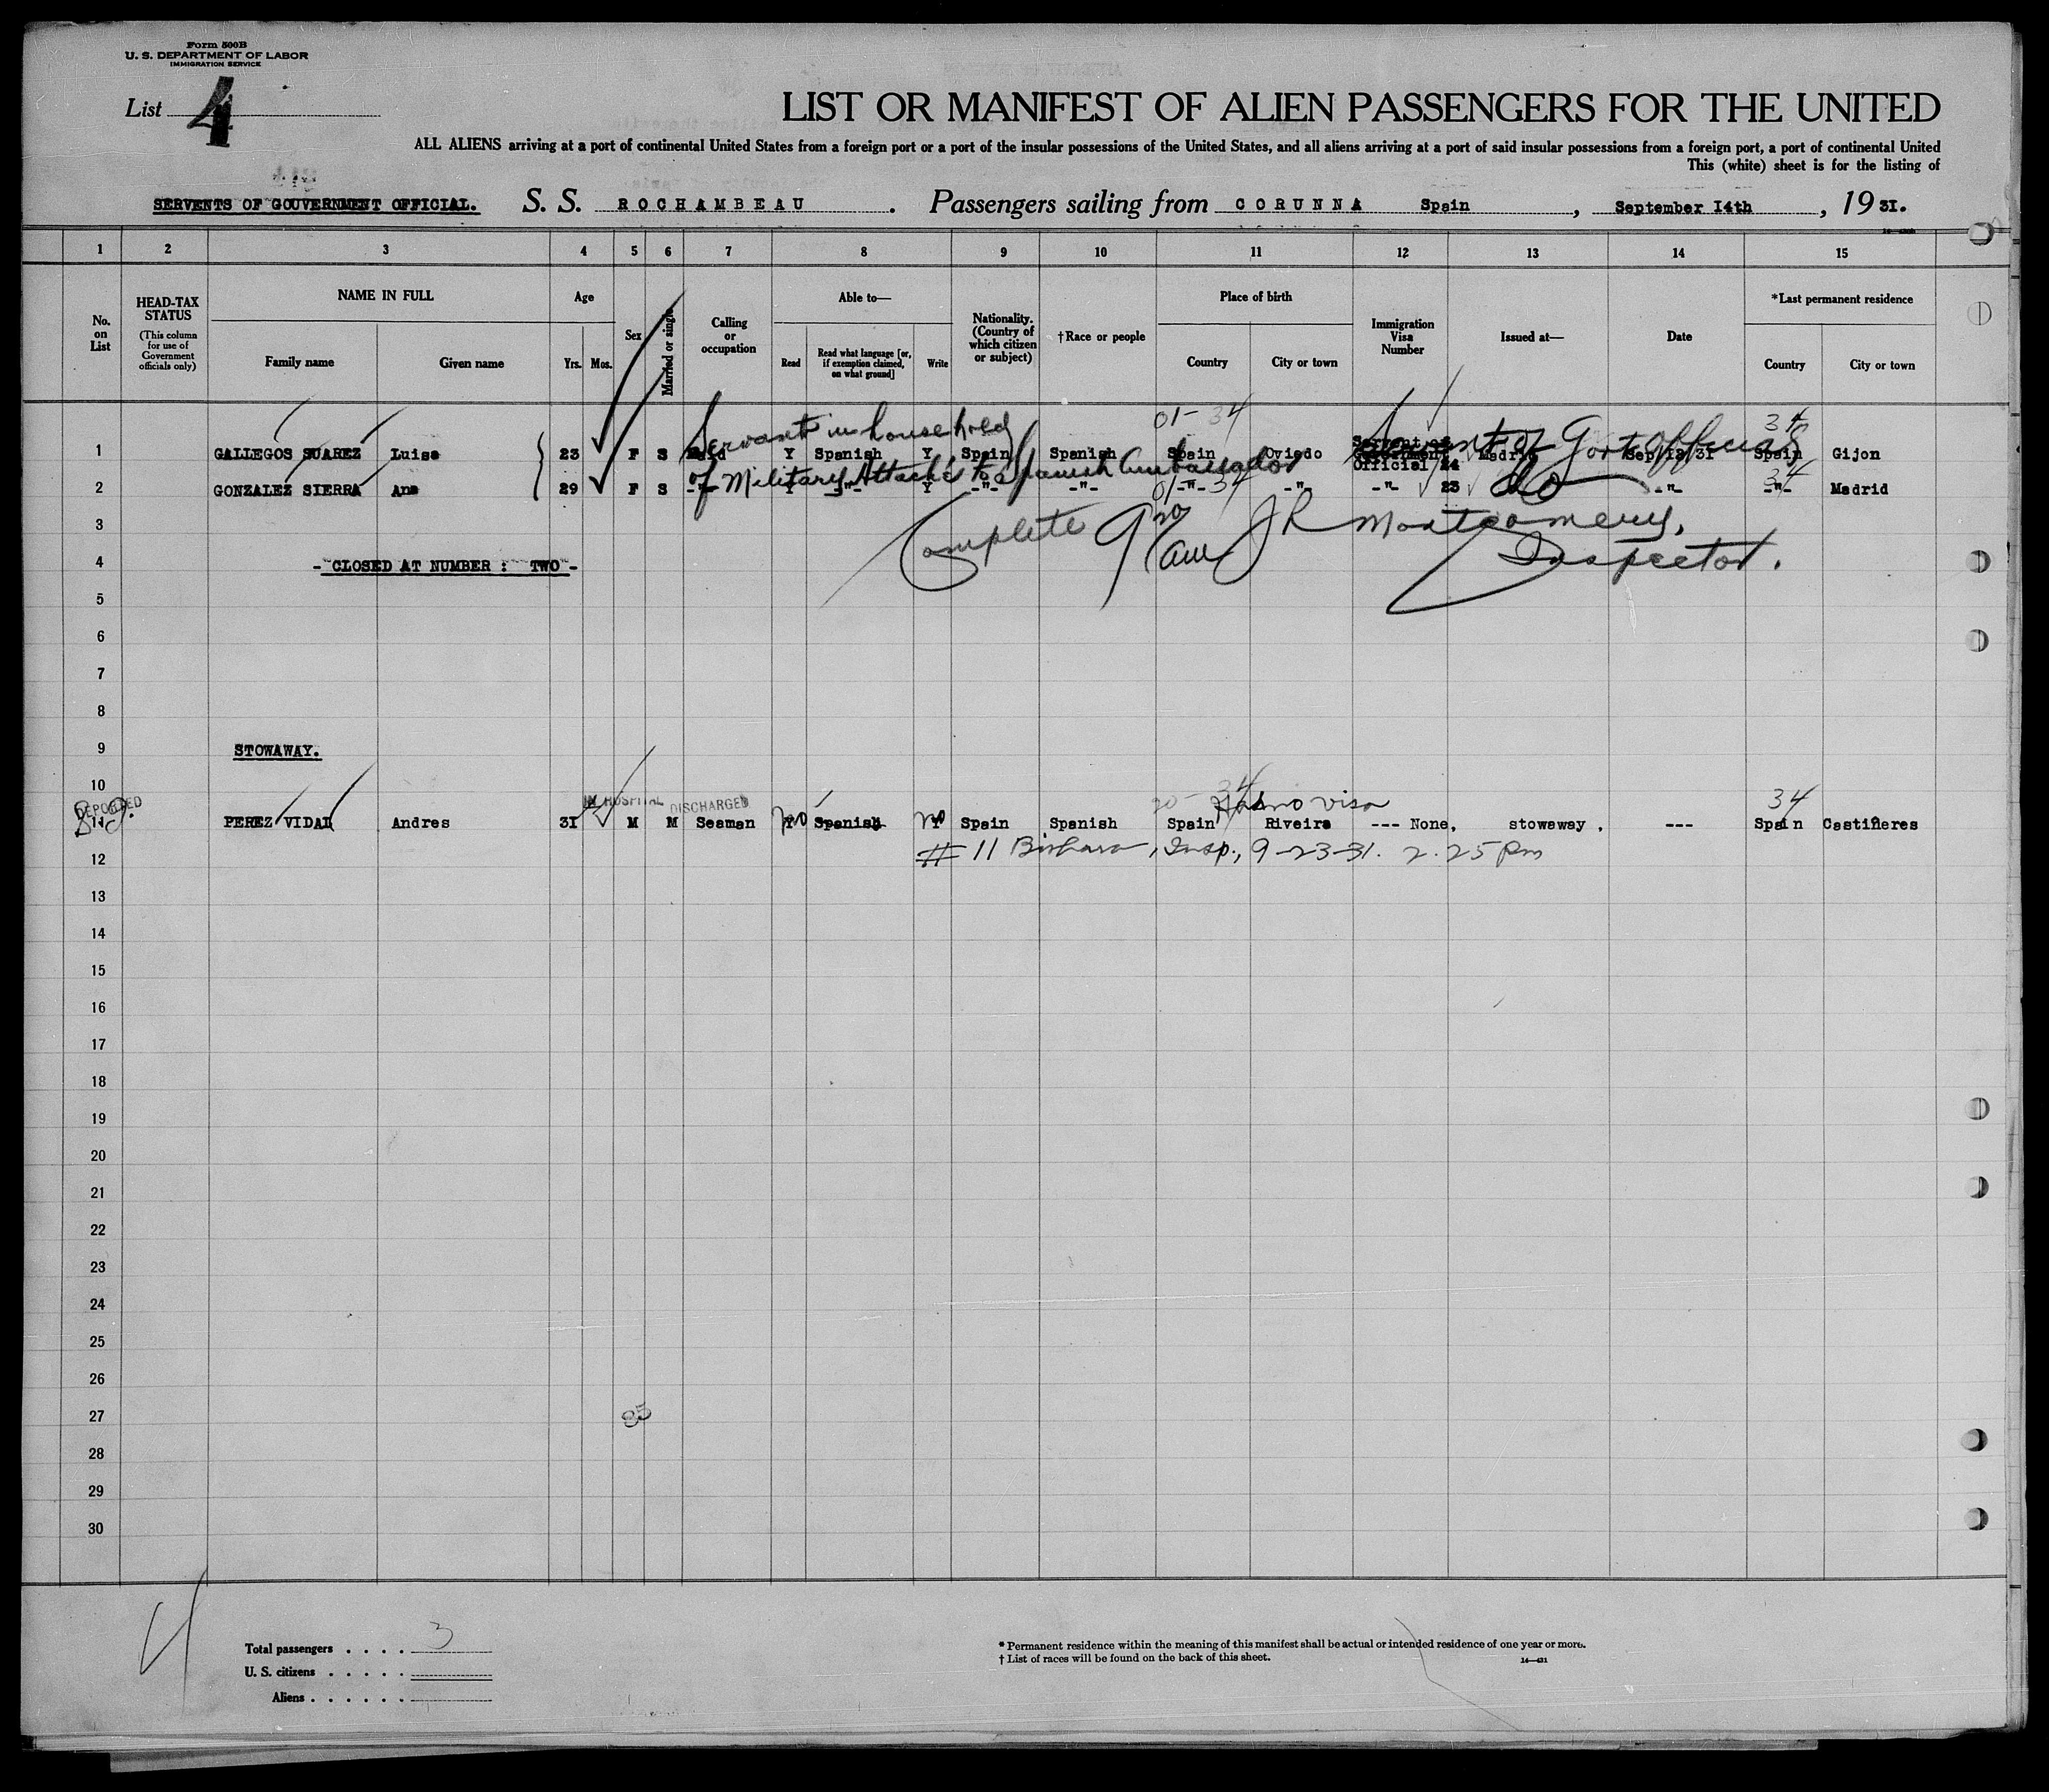 Form 500B
U. S. DEPARTMENT OF LABOR
IMMIGRATION SERVICE
List 4
LIST OR MANIFEST OF ALIEN PASSENGERS FOR THE UNITED
ALL ALIENS arriving at a port of continental United States from a foreign port or a port of the insular possessions of the United States, and all aliens arriving at a port of said insular possessions from a foreign port, a port of continental United
This (white) sheet is for the listing of
SERVENTS OF GOUVERNMENT OFFICIAL. S. S. ROCHAMBEAU. Passengers sailing from CORUNNA Spain, September I4th, 19 31.
1 2 3 4 5 6 7 8 9 10 11 12 13 14 15
No. on List
HEAD-TAX STATUS
(This column for use of Government officials only)
NAME IN FULL
Family name Given name
Age
Yrs. Mos.
Sex
Married or single
Calling or occupation
Able to—
Read
Read what language [or, if exemption claimed, on what ground]
Write
Nationality. (Country of which citizen or subject)
†Race or people
Place of birth
Country City or town
Immigration Visa Number
Issued at—
Date
*Last permanent residence
Country City or town
01-34 34
Servant in household Servant of Govt official
1 GALLEGOS SUAREZ Luisa 23 F S Maid Y Spanish Y Spain Spanish Spain Oviedo Servent of Gouvernment Official 24 Madrid Sep 12 31 Spain Gijon
of Military Attaché to Spanish Ambassador 01-34 do 34
2 GONZALEZ SIERRA Ana 29 F S -"- Y -"- Y -"- -"- -"- -"- -"- 23 -"- -"- Madrid
3
Complete JR Montgomery,
Inspector.
4 - CLOSED AT NUMBER : TWO -
5
6
7
8
9 STOWAWAY.
10
DEPORTED IN HOSPITAL DISCHARGED 34 Has no visa 34
11 PEREZ VIDAL Andres 3I M M Seaman no Y Spanish no Y Spain Spanish Spain Riveira --- None, stowaway , --- Spain Castiñeres
12 # 11 , Insp., 9-23-31. 2.25 pm
13
14
15
16
17
18
19
20
21
22
23
24
25
26
27 35
28
29
30
4
Total passengers . . . . 3
U. S. citizens . . . . .
Aliens . . . . . .
* Permanent residence within the meaning of this manifest shall be actual or intended residence of one year or more.
† List of races will be found on the back of this sheet.
14—431